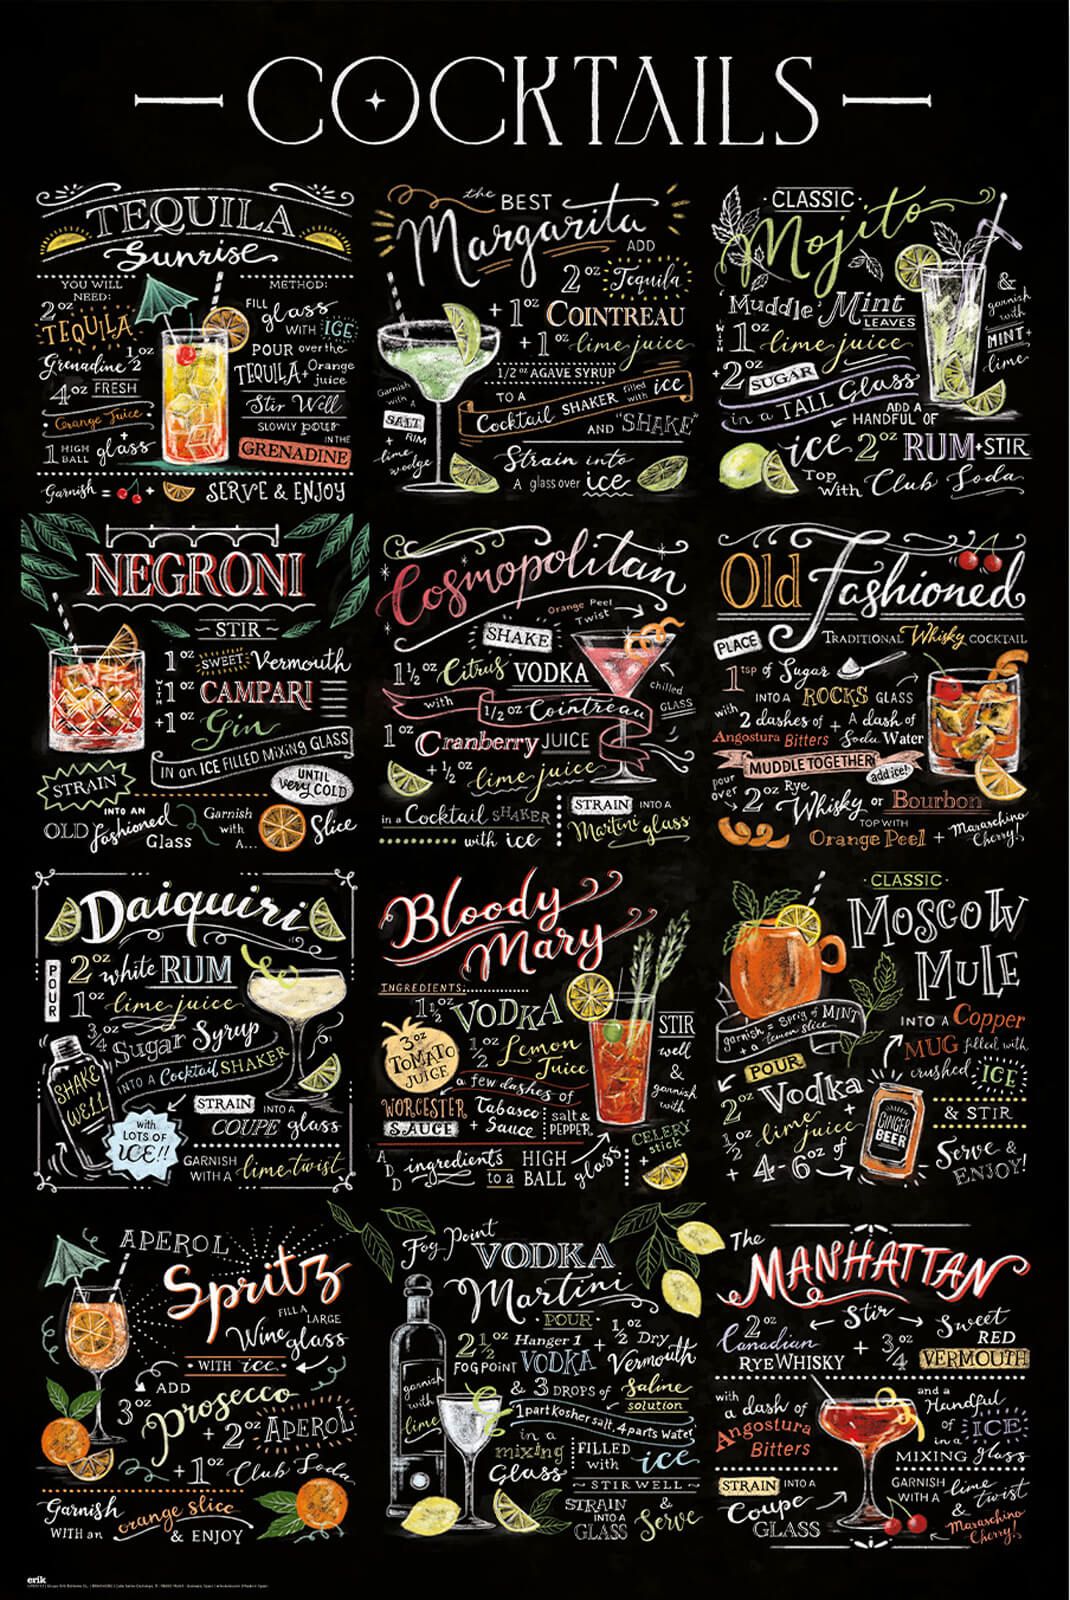 COCKTAILS
TEQUILA
Sunrise
YOU WILL
NEED:
2 oz
TEQUILA
Grenadine 1/2 oz
4 oz FRESH
Orange Juice
+
1 HIGH BALL glass
METHOD:
FILL glass
WITH ICE
POUR over the
TEQUILA + Orange juice
Stir Well
SLOWLY pour
IN THE
GRENADINE
Garnish = + SERVE & ENJOY
the BEST
Margarita
ADD
2 oz Tequila
+ 1 oz COINTREAU
+ 1 oz lime juice
1/2 oz AGAVE SYRUP
TO A
Cocktail SHAKER filled with ice
AND "SHAKE"
Strain into
A glass over ice
Garnish
with a
SALT
RIM
+
lime
wedge
CLASSIC
Mojito
'Muddle' Mint
LEAVES
WITH 1 oz lime juice
+ 2 oz SUGAR
in a TALL Glass
ADD A
HANDFUL OF
ice 2 oz RUM + STIR
Top With Club Soda
&
garnish
with
MINT +
lime
NEGRONI
STIR
1 oz SWEET Vermouth
WITH 1 oz CAMPARI
+ 1 oz Gin
IN an ICE FILLED MIXING GLASS
STRAIN
UNTIL
very COLD
INTO AN
OLD fashioned
Glass
Garnish
with
A...
Slice
Cosmopolitan
Orange Peel
Twist
SHAKE
1 1/2 oz Citrus VODKA
with 1/2 oz Cointreau
chilled
GLASS
1 oz Cranberry JUICE
+ 1/2 oz lime juice
in a Cocktail SHAKER
with ice
STRAIN INTO A
Martini glass
Old Fashioned
PLACE
TRADITIONAL Whisky COCKTAIL
1 tsp of Sugar
INTO A ROCKS GLASS
with 2 dashes of + A dash of
Angostura Bitters Soda Water
MUDDLE TOGETHER
add ice!
pour over 2 oz Rye
Whisky or Bourbon
TOP WITH
Orange Peel + Maraschino
Cherry!
Daiquiri
POUR
2 oz white RUM
1 oz lime juice
3/4 oz Sugar Syrup
INTO A Cocktail SHAKER
SHAKE
WELL
with
LOTS OF
ICE!!
STRAIN INTO A
COUPE glass
GARNISH
WITH A lime twist
Bloody
Mary
INGREDIENTS:
1 1/2 oz VODKA
3 oz
TOMATO
JUICE
1/2 oz Lemon
Juice
a few dashes of
WORCESTER
SAUCE
Tabasco
+ Sauce
salt &
PEPPER
ADD ingredients
to a HIGH
BALL glass
STIR
well
&
garnish
with
CELERY
stick
+
CLASSIC
MOSCOW
MULE
INTO A Copper
MUG filled with
crushed ICE
garnish = Sprig of MINT
+ a lemon slice
POUR
2 oz Vodka
+
1/2 oz lime juice
+ 4-6 oz of
GINGER
BEER
& STIR
Serve &
ENJOY!
APEROL
Spritz
FILL A
LARGE
Wine glass
WITH ice
ADD
3 oz Prosecco
+ 2 oz APEROL
+ 1 oz Club Soda
Garnish
WITH an orange slice
& ENJOY
Fog Point
VODKA
Martini
POUR
2 1/2 oz Hanger 1 + 1/2 oz Dry
FOG POINT VODKA Vermouth
& 3 DROPS of Saline
solution
1 part kosher salt, 4 parts water
garnish
with
lime
in a
mixing
Glass
FILLED
with ice
STIR WELL
STRAIN
INTO A
GLASS
&
Serve
The
MANHATTAN
Stir
2 oz
Canadian
RYE WHISKY
+ 3/4 oz Sweet
RED
VERMOUTH
with
a dash of
Angostura
Bitters
and a
Handful
of ICE
in a
MIXING glass
STRAIN INTO A
Coupe
GLASS
GARNISH
WITH A lime
twist
&
Maraschino
Cherry!
erik